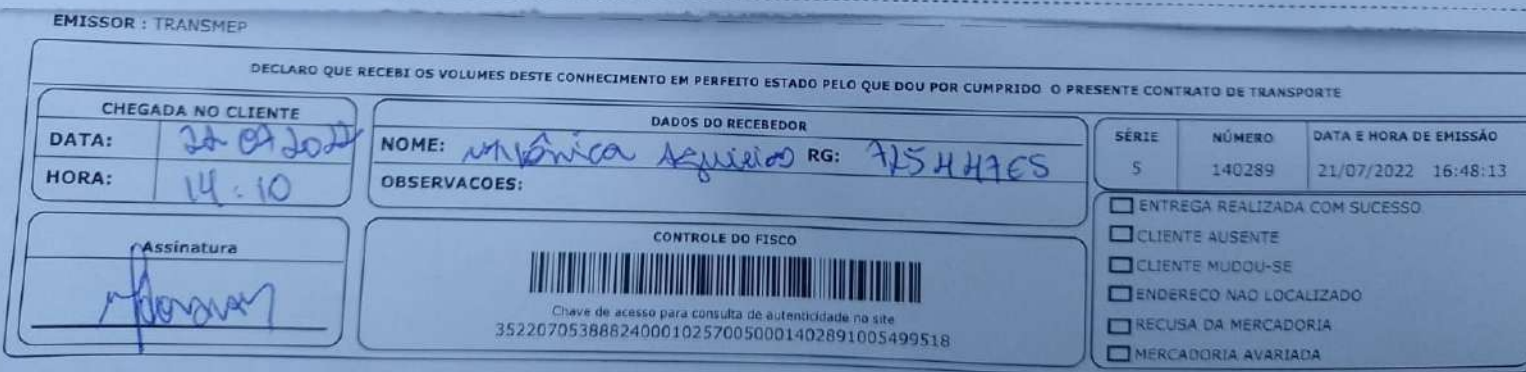 EMISSOR : TRANSMEP
DECLARO QUE RECEBI OS VOLUMES DESTE CONHECIMENTO EM PERFEITO ESTADO PELO QUE DOU POR CUMPRIDO O PRESENTE CONTRATO DE TRANSPORTE
CHEGADA NO CLIENTE
DATA:
HORA: 14:10
Assinatura
DADOS DO RECEBEDOR
NOME: RG:
OBSERVACOES:
CONTROLE DO FISCO
Chave de acesso para consulta de autenticidade no site
35220705388824000102570050001402891005499518
SÉRIE NÚMERO DATA E HORA DE EMISSÃO
5 140289 21/07/2022 16:48:13
ENTREGA REALIZADA COM SUCESSO
CLIENTE AUSENTE
CLIENTE MUDOU-SE
ENDERECO NAO LOCALIZADO
RECUSA DA MERCADORIA
MERCADORIA AVARIADA